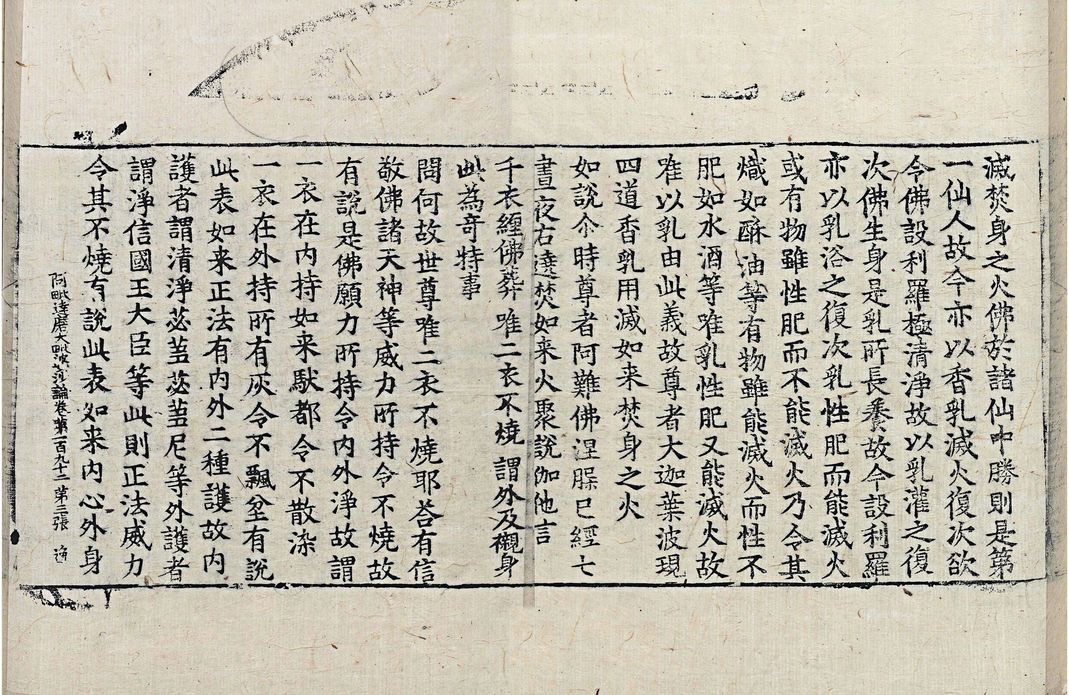 滅焚身之火佛於諸仙中勝則是第
一仙人故今亦以香乳滅火復次欲
令佛設利羅極清淨故以乳灌之復
次佛生身是乳所長養故今設利羅
亦以乳浴之復次乳性肥而能滅火
或有物雖性肥而不能滅火乃令其
熾如酥油等有物雖能滅火而性不
肥如水酒等唯乳性肥又能滅火故
唯以乳由此義故尊者大迦葉波現
四道香乳用滅如来焚身之火
如說尒時尊者阿難佛涅槃已經七
晝夜右遶焚如来火聚說伽他言
千衣纏佛葬唯二衣不燒謂外及襯身
此為奇特事
問何故世尊唯二衣不燒耶荅有信
敬佛諸天神等威力所持令不燒故
有說是佛願力所持令內外淨故謂
一衣在内持如来馱都令不散染
一衣在外持所有灰令不飄坌有說
此表如来正法有内外二種護故内
護者謂清淨苾芻苾芻尼等外護者
謂淨信國王大臣等此則正法威力
令其不燒有說此表如来内心外身
阿毗達磨大毗婆沙論卷第一百九十二 第三張 逸